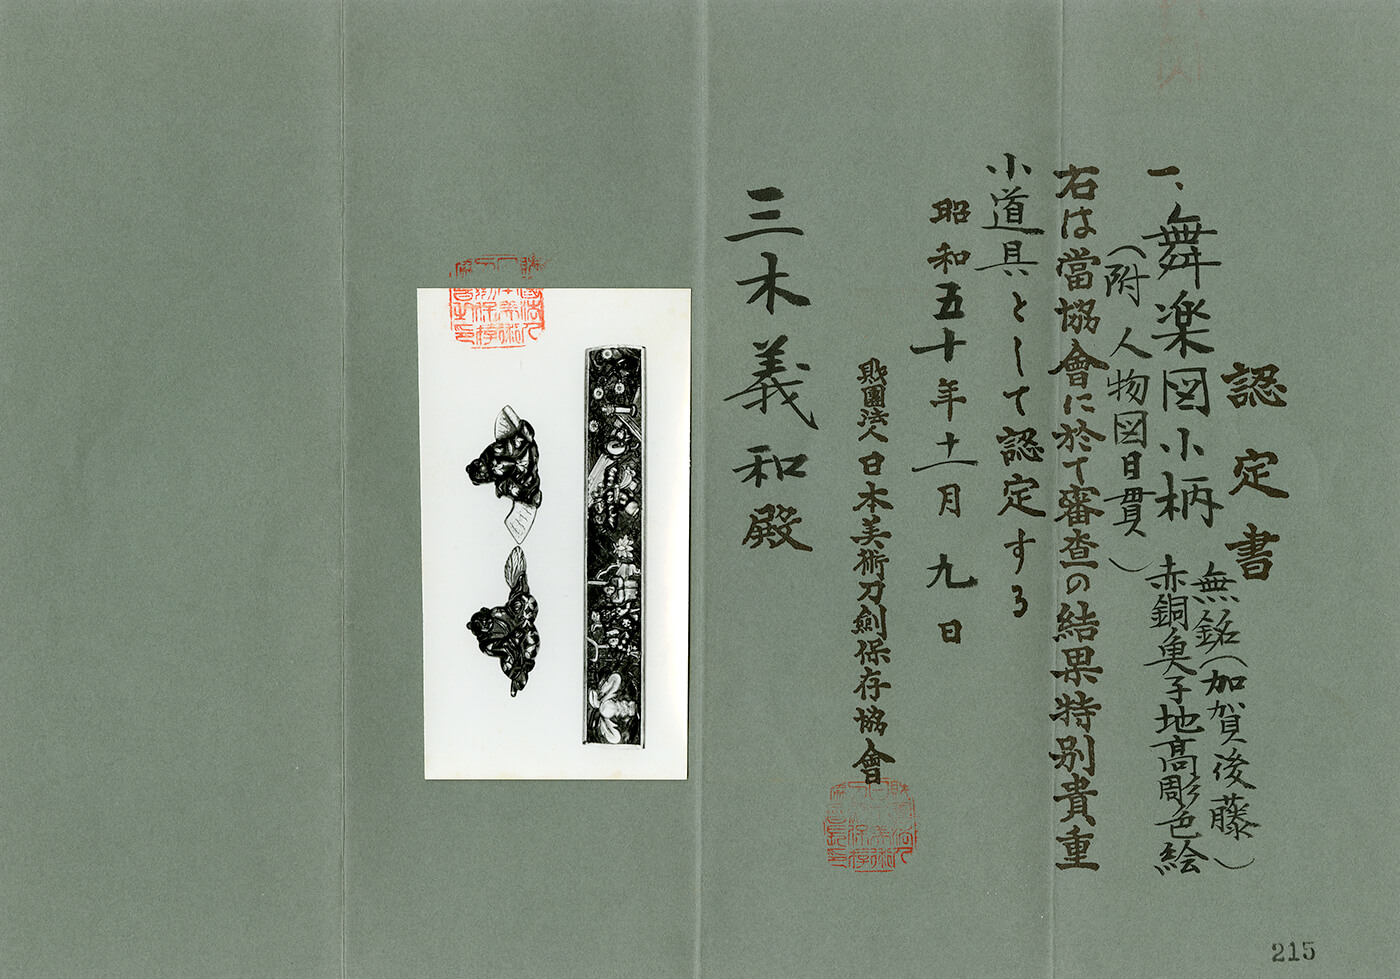 認定書
一、舞楽図小柄 無銘（加賀後藤）
赤銅魚子地高彫色絵
（附 人物図目貫）
右は當協會に於て審査の結果特別貴重
小道具として認定する
昭和五十年十一月九日
財團法人日本美術刀剣保存協會
三木義和殿
215